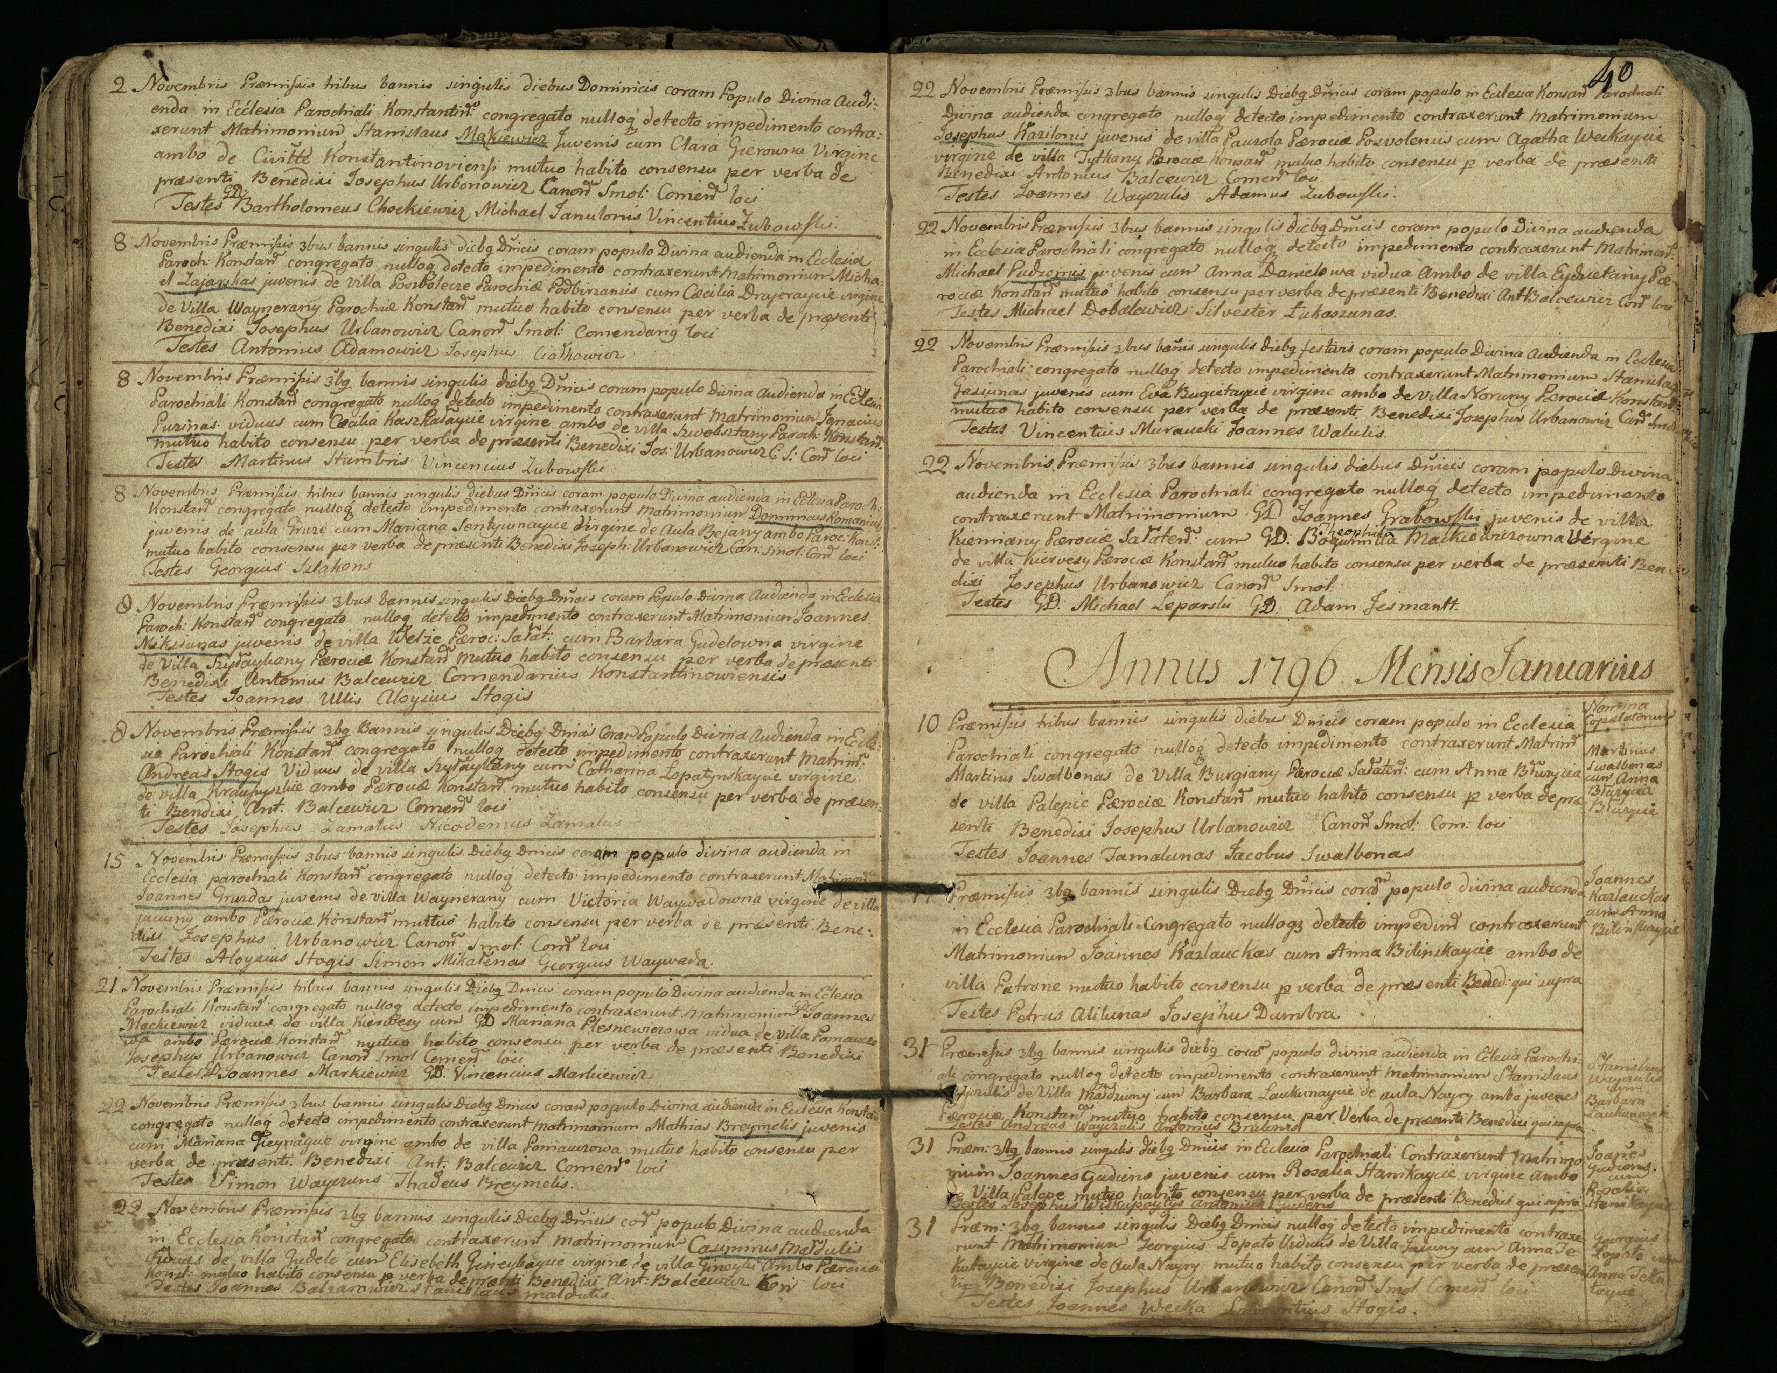 2 Novembris Præmissis tribus bannis singulis diebus Dominicis coram Populo Divina Audi:
enda in Ecclesia Parochiali Konstantin congregato nulloq detecto impedimento contra:
xerunt Matrimonium Stanislaus Makiewicz Juvenis cum Clara Gierowna Virgine
ambo de Civitte Konstantinoviensi mutuo habito consensu per verba de
præsenti Benedixi Josephus Urbanowicz Canon Smol: Comen loci
Testes GD Bartholomeus Chockiewicz Michael Janulonis Vincentius Zubowski.
8 Novembris Præmissis 3bus bannis singulis diebq Dnicis coram populo Divina audienda in Ecclesia
Paroch: Konstan congregato nulloq detecto impedimento contraxerunt Matrimonium Micha:
el Zajarskas juvenis de villa Poswolecze Parochiæ Podbirzansis cum Cæcilia Drayeraycie virgine
de Villa Waynerany Parochiæ Konstan mutuo habito consensu per verba de præsenti
Benedixi Josephus Urbanowicz Canon Smol: Comendariq loci
Testes Antonius Adamowicz Josephus
8 Novembris Præmissis 3bq bannis singulis diebq Dnicis coram populo Divina Audienda in Ecclesia
Parochiali Konstan congregato nulloq detecto impedimento contraxerunt Matrimonium Ignacius
Puzinas viduus cum Cæcilia Kaszkalaycie virgine ambo de villa Szwobsztany Paroch: Konstan
mutuo habito consensu per verba de præsenti Benedixi Jos: Urbanowicz C: S: Com loci
Testes Martinus Stumbris Vincencius Zubowski
8 Novembris Præmissis tribus bannis singulis diebus Dnicis coram populo Divina audienda in Ecclesia Paroch:
Konstan congregato nulloq detecto impedimento contraxerunt Matrimonium Dominicus Romanowicz
juvenis de aula Giurze cum Mariana Sentywnaycie Virgine de Aula Bejany ambo Paroc: Konst:
mutuo habito consensu per verba de præsenti Benedixi Joseph: Urbanowicz Can: Smol: Com loci
Testes Georgius Izlakons
8 Novembris Præmissis 3bus bannis singulis Diebq Dnicis coram Populo Divina Audienda in Ecclesia
Paroch: Konstan congregato nulloq detecto impedimento contraxerunt Matrimonium Joannes
Niksunas juvenis de villa Welze Paroc: Salat: cum Barbara Gudelowna virgine
de Villa Szysaykany Parociæ Konstan mutuo habito consensu per verba de præsenti
Benedixi Antonius Balcewicz Comendarius Konstantinowiensis
Testes Joannes Ullis Aloysius Stogis
8 Novembris Præmissis 3bq Bannis singulis Diebq Dnicis Coram Populo Divina Audienda in Eccle:
sia Parochiali Konstan congregato nulloq detecto impedimento contraxerunt Matrim:
Andreas Stogis Viduus de villa Szysaykany cum Catharina Lopatynskaycie virgine
de villa ambo Parociæ Konstan mutuo habito consensu per verba de præsen:
ti Benedixi Ant: Balcewicz Comen loci
Testes Josephus Zamalus Nicodemus Zamalus
15 Novembris Præmissis 3bus bannis singulis Diebq Dnicis coram populo divina audienda in
Ecclesia parochiali Konstan congregato nulloq detecto impedimento contraxerunt Matrimon:
Joannes Grudas juvenis de villa Waynerany cum Victoria Waywadowna virgine de villa
ambo Parociæ Konstan mutuo habito consensu per verba de præsenti Bene:
dixi Josephus Urbanowicz Canon Smol: Com loci
Testes Aloysius Stogis Simon Mikalenas Georgius Waywada
21 Novembris Præmissis tribus bannis singulis Diebq Dnicis coram populo Divina audienda in Ecclesia
Parochiali Konstan congregato nulloq detecto impedimento contraxerunt Matrimonium GD Joannes
Mackiewicz viduus de villa Kierwezy cum GD Mariana Plesniewiczowa vidua de Villa Pomaucz
wa ambo Parociæ Konstan mutuo habito consensu per verba de præsenti Benedixi
Josephus Urbanowicz Canon Smol Comen loci
Testes GD Joannes Markiewicz GD. Vincencius Markiewicz
22 Novembris Præmissis 3bus bannis singulis Diebq Dnicis coram populo Divina audienda in Ecclesia Konstan
congregato nulloq detecto impedimento contraxerunt matrimonium Mathias Breymelis juvenis
cum Mariana virgine ambo de villa Pomiauczowa mutuo habito consensu per
verba de præsenti. Benedixi Ant: Balcewicz Comen loci
Testes Simon Wayczuns Thadeus Breymelis.
22 Novembris Præmissis 3bq bannis singulis Diebq Dnicis cor populo Divina audienda
in Ecclesia Konstan congregato contraxerunt Matrimonium Casimirus Mardulis
Viduus de villa Gudele cum Elisabeth virgine de villa ambo Parociæ
Konst: mutuo habito consensu p verba de præsenti Benedixi Ant: Balcewicz Kom loci
Testes Joannes Balzarowicz Stanislaus Maldutis
40
22 Novembris Præmissis 3bus bannis singulis Diebq Dnicis coram populo in Ecclesia Konstan Parochiali
Divina audienda congregato nulloq detecto impedimento contraxerunt Matrimonium
Josephus Kazilonis juvenis de villa Pauzola Parociæ Poswolensis cum Agatha Weckaycie
virgine de villa Tytkany Parociæ Konstan mutuo habito consensu p verba de præsenti
Benedixi Antonius Balcewicz Comen loci
Testes Joannes Wayczulis Adamus Zubowski.
22 Novembris Præmissis 3bus bannis singulis diebq Dnicis coram populo Divina audienda
in Ecclesia Parochiali congregato nulloq detecto impedimento contraxerunt Matrimon:
Michael Pudzemis juvenis cum Anna Danielowa vidua Ambo de villa Pa:
rociæ Konstan mutuo habito consensu per verba de præsenti Benedixi Ant Balcewicz Com loci
Testes Michael Dobalewicz Silvester Lukaszunas.
22 Novembris Præmissis 3bus banis singulis diebq festivis coram populo Divina Audienda in Ecclesia
Parochiali congregato nulloq detecto impedimento contraxerunt Matrimonium Stanislaus
Gasiunas juvenis cum Eva Buywtaycie virgine ambo de villa Noruny Parociæ Konstan
mutuo habito consensu per verba de præsenti Benedixi Josephus Urbanowicz Can Smol
Testes Vincentius Murauski Joannes Walulis.
22 Novembris Præmissis 3bus bannis singulis diebus Dnicis coram populo Divina
audienda in Ecclesia Parochiali congregato nulloq detecto impedimento
contraxerunt Matrimonium GD Joannes Grabowski juvenis de villa
Kiemiany Parociæ Salaten: cum GD. Theophila Bogumilla Mackiewiczowna Virgine
de villa Kierwezy Parociæ Konstan mutuo habito consensu per verba de præsenti Bene:
dixi Josephus Urbanowicz Canon Smol
Testes GD. Michael Leparski GD. Adam Jesmantt.
Annus 1796 Mensis Januarius
10 Præmissis tribus bannis singulis diebus Dnicis coram populo in Ecclesia
Parochiali congregato nulloq detecto impedimento contraxerunt Matrim
Martinus Swalbonas de Villa Burgiany Parociæ Salaten: cum Anna
de villa Palepie Parociæ Konstan mutuo habito consensu p verba de præ
senti Benedixi Josephus Urbanowicz Canon Smol: Com: loci
Testes Joannes Tamalunas Jacobus Swalbonas
Nomina
Copulatorum
Martinus
Swalbonas
cum Anna
17 Præmissis 3bq bannis singulis Diebq Dnicis coram populo divina audienda
in Ecclesia Parochiali Congregato nulloq detecto impedim contraxerunt
Matrimonium Joannes Kazlauckas cum Anna Bilinskaycie ambo de
villa Patrone mutuo habito consensu p verba de præsenti Bened: qui supra
Testes Petrus Atilunas Josephus Dumbra
Joannes
Kazlauckas
cum Anna
Bilinskaycie
31 Præmissis 3bq bannis singulis diebq coram populo divina audienda in Ecclesia Parochi:
ali congregato nulloq detecto impedimento contraxerunt matrimonium Stanislaus
Wayczulis de Villa Mardzuny cum Barbara Laukunaycie de aula Nayry ambo juvenes
Parociæ Konstan mutuo habito consensu per Verba de præsenti Benedixi qui supra
Testes Andreas Wayczulis Antonius Brulinas
Stanislaus
Wayczulis
cum
Barbara
Laukunaycie
31 Præm: 3bq bannis singulis diebq Dnicis in Ecclesia Parochiali Contraxerunt Matrimo
nium Joannes Gudiens juvenis cum Rozalia Stanikaycie virgine Ambo
de Villa Palepe mutuo habito consensu per verba de præsenti Benedixi qui supra
Testes Josephus Antonius
Joanes
Gudiens
cum
Rozalia
Stanikaycie
31 Præm: 3bq bannis singulis Diebq Dnicis nulloq detecto impedimento contraxe
runt Matrimonium Georgius Lopato Viduus de Villa Juciuny cum Anna Te
kutaycie virgine de Aula Nayry mutuo habito consensu per verba de præsen
tiq Benedixi Josephus Urbanowicz Canon Smol Comen loci
Testes Joannes Wecka Laurentius Stogis.
Georgius
Lopato cum
Anna Teku
taycie